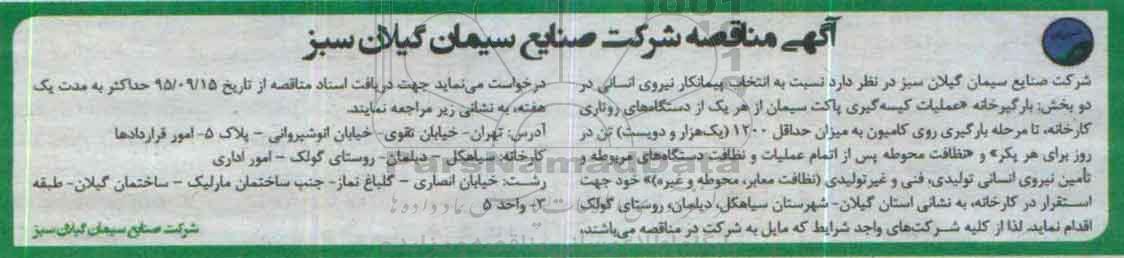 آگهی مناقصه شرکت صنایع سیمان گیلان سبز
شرکت صنایع سیمان گیلان سبز در نظر دارد نسبت به انتخاب پیمانکار نیروی انسانی در
دو بخش: بارگیرخانه «عملیات کیسه‌گیری پاکت سیمان از هر یک از دستگاه‌های روتاری
کارخانه، تا مرحله بارگیری روی کامیون به میزان حداقل ۱۲۰۰ (یک‌هزار و دویست) تن در
روز برای هر پکر» و «نظافت محوطه پس از اتمام عملیات و نظافت دستگاه‌های مربوطه و
تأمین نیروی انسانی تولیدی، فنی و غیرتولیدی (نظافت معابر، محوطه و غیره)» خود جهت
استقرار در کارخانه، به نشانی استان گیلان- شهرستان سیاهکل، دیلمان، روستای گولک
اقدام نماید. لذا از کلیه شرکت‌های واجد شرایط که مایل به شرکت در مناقصه می‌باشند،
درخواست می‌نماید جهت دریافت اسناد مناقصه از تاریخ ۹۵/۰۹/۱۵ حداکثر به مدت یک
هفته، به نشانی زیر مراجعه نمایند.
آدرس: تهران- خیابان تقوی- خیابان انوشیروانی – پلاک ۵- امور قراردادها
کارخانه: سیاهکل – دیلمان- روستای گولک – امور اداری
رشت: خیابان انصاری – گلباغ نماز- جنب ساختمان مارلیک – ساختمان گیلان- طبقه
۳- واحد ۵
شرکت صنایع سیمان گیلان سبز
ParsNamadData